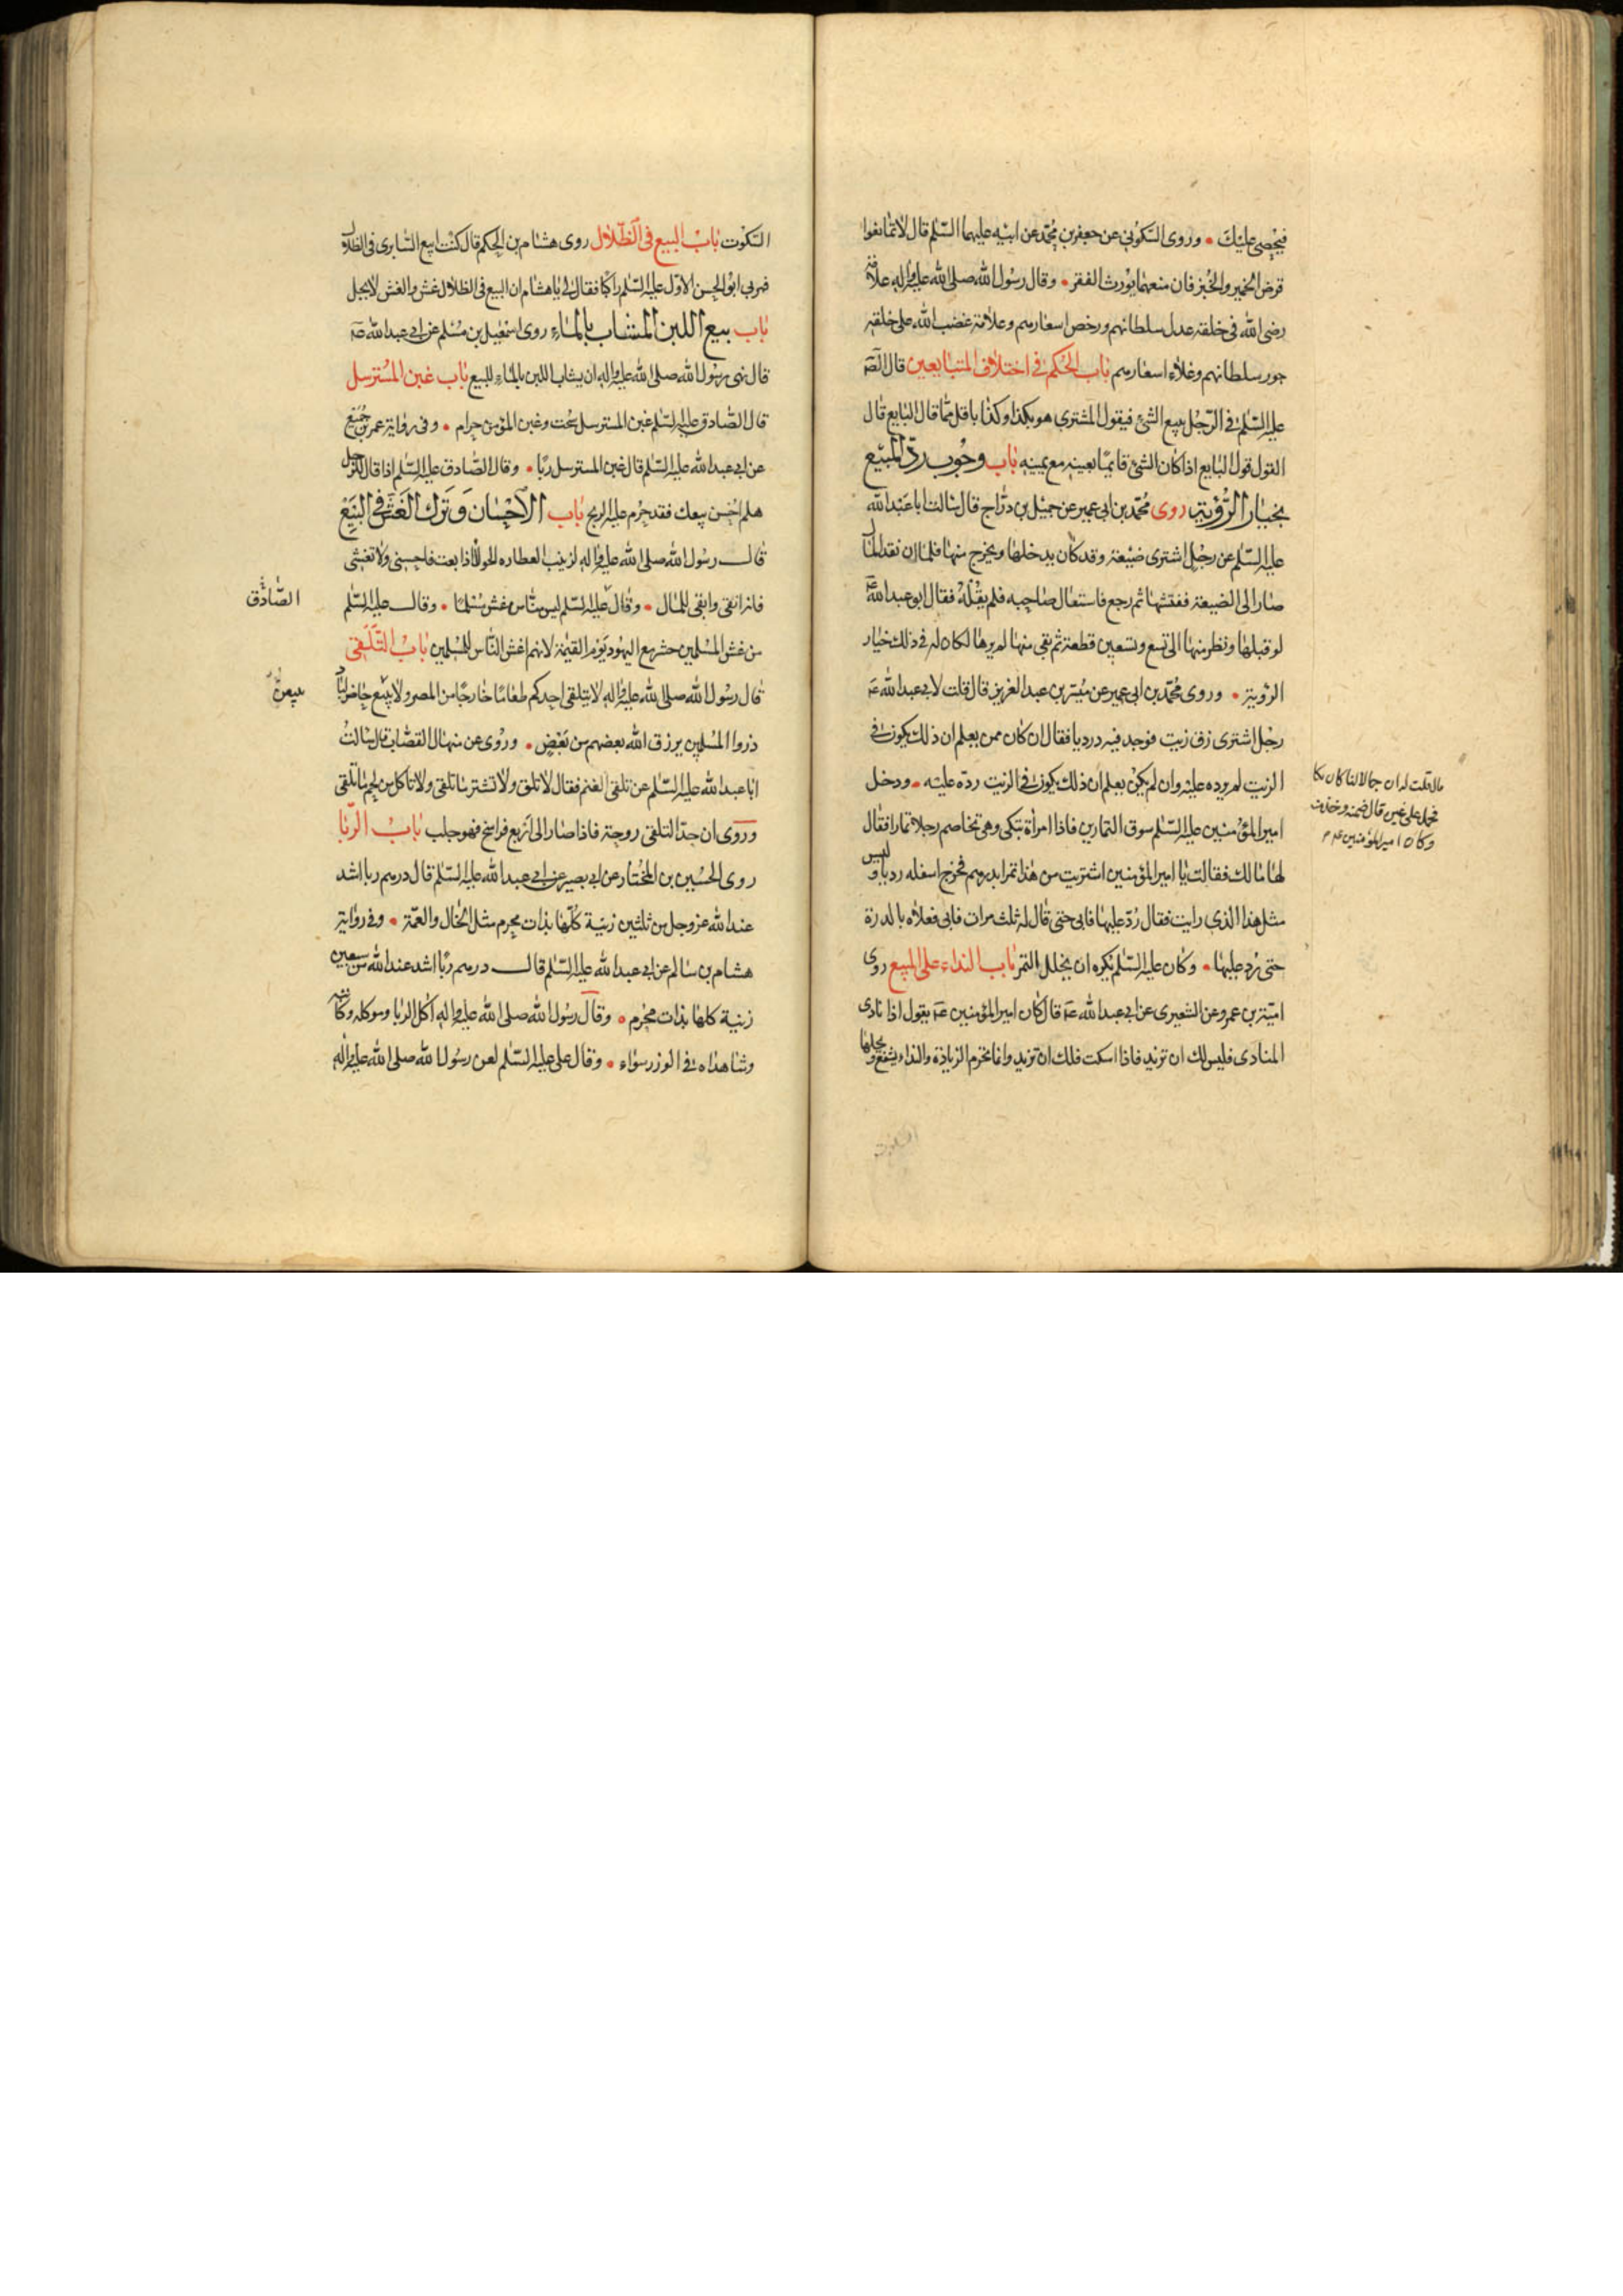 فيحصى عليك • وروى السّكونى عن جعفر بن محمّد عن ابيه عليهما السّلم قال لا تمانعوا
قرض الخمير والخبز فان منعهما يورث الفقر • وقال رسول الله صلى الله عليه واله علامة
رضى الله فى خلقه عدل سلطانهم ورخص اسعارهم وعلامة غضب الله على خلقه
جور سلطانهم وغلاء اسعارهم باب الحكم فى اختلاف المتبايعين قال الصّ
عليه السّلم فى الرّجل يبيع الشئ فيقول المشترى هو بكذا وكذا باقل ممّا قال البايع قال
القول قول البايع اذا كان الشئ قايمًا بعينه مع يمينه باب وجوب ردّ المبيع
بخيار الرّؤية روى محمّد بن ابى عمير عن جميل بن درّاج قال سالت ابا عبد الله
عليه السّلم عن رجل اشترى ضيعة وقد كان يدخلها ويخرج منها فلما ان نقد المال
صار الى الضيعة ففتشها ثم رجع فاستقال صاحبه فلم يقله فقال ابو عبد الله ع
لو قبلها ونظر منها الى تسع وتسعين قطعة ثم بقى منها لم يرها لكان له فى ذلك خيار
الرّوية • وروى محمّد بن ابى عمير عن ميسّر بن عبد العزيز قال قلت لابى عبد الله ع
رجل اشترى زق زيت فوجد فيه درديا فقال ان كان ممن يعلم ان ذلك يكون فى
الزيت لم يرده عليه وان لم يكن يعلم ان ذلك يكون فى الزيت ردّه عليه • ودخل
مال قلت له ان جمالا لنا كان يكا
فحمل على غيره قال ضمنه وخذ منه
وكان امير المؤمنين ع م
امير المؤمنين عليه السّلم سوق التمارين فاذا امرأة تبكى وهى تخاصم رجلا تمارا فقال
لها مالك فقالت يا امير المؤمنين اشتريت من هذا تمرا بدرهم فخرج اسفله رديا وليس
مثل هذا الذى رايت فقال ردّ عليها فابى حتى قال له ثلث مرات فابى فعلاه بالدرة
حتى ردّ عليها • وكان عليه السّلم يكره ان يجلل التمر باب النداء على المبيع روى
اميّة بن عمرو عن الشعيرى عن ابى عبد الله ع قال كان امير المؤمنين ع يقول اذا نادى
المنادى فليس لك ان تزيد فاذا اسكت فلك ان تزيد وانما تحرم الزيادة والنداء يسمع ويحلها
السكوت
السّكوت باب البيع فى الظّلال روى هشام بن الحكم قال كنت ابيع السّابرى فى الظلال
فمر بى ابو الحسن الاوّل عليه السّلم راكبًا فقال لى يا هشام ان البيع فى الظلال غش والغش لا يحل
باب بيع اللبن المشاب بالماء روى اسمعيل بن مسلم عن ابى عبد الله ع
قال نهى رسول الله صلى الله عليه واله ان يشاب اللبن بالماء للبيع باب غبن المسترسل
قال الصّادق عليه السّلم غبن المسترسل سحت وغبن المؤمن حرام • وفى رواية عمرو بن جميع
عن ابى عبد الله عليه السّلم قال غبن المسترسل ربًا • وقال الصّادق عليه السّلم اذا قال الرجل للرجل
هلم احسن بيعك فقد حرم عليه الربح باب الاحسان وترك الغشّ فى البيع
قال رسول الله صلى الله عليه واله لزينب العطاره الحولاء اذا بعت فاحسنى ولا تغشى
فانه انقى وابقى للمال • وقال عليه السّلم ليس منّا من غش مسلمًا • وقال عليه السّلم
الصّادق
من غش المسلمين حشر مع اليهود يوم القيمة لانهم اغش النّاس للمسلمين باب التّلقى
قال رسول الله صلى الله عليه واله لا يتلقى احدكم طعامًا خارجًا من المصر ولا يبيع حاضر لباد
ذروا المسلمين يرزق الله بعضهم من بعض • وروى عن منهال القصّاب قال سالت
ابا عبد الله عليه السّلم عن تلقى الغنم فقال لا تلق ولا تشتر ما تلقى ولا تاكل من لحم ما تلقى
وروى ان حدّ التلقى روحة فاذا صار الى اربع فراسخ فهو جلب باب الرّبا
روى الحسين بن المختار عن ابى بصير عن ابى عبد الله عليه السّلم قال درهم ربا اشد
عند الله عز وجل من ثلثين زنية كلّها بذات محرم مثل الخال والعمّة • وفى رواية
هشام بن سالم عن ابى عبد الله عليه السّلم قال درهم ربًا اشد عند الله من سبعين
زنية كلها بذات محرم • وقال رسول الله صلى الله عليه واله اكل الربا وموكله وكاتبه
وشاهداه فى الوزر سواء • وقال على عليه السّلم لعن رسول الله صلى الله عليه واله